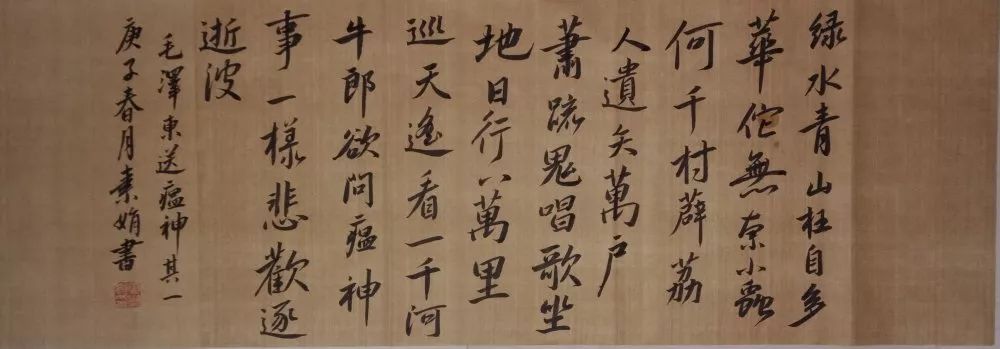 绿水青山枉自多
華佗無奈小蟲
何千村薜荔
人遺矢萬户
蕭疏鬼唱歌坐
地日行八萬里
巡天遙看一千河
牛郎欲問瘟神
事一樣悲歡逐
逝波
毛澤東送瘟神其一
庚子春月素娟書